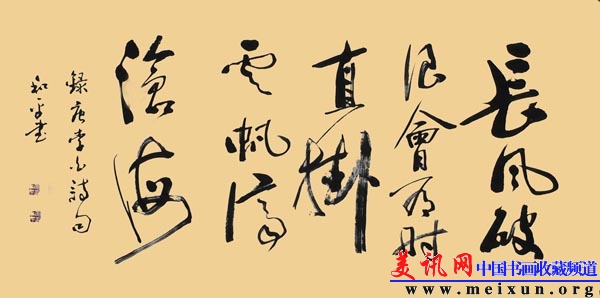 長風破
浪會有時
直掛
雲帆濟
滄海
録唐李白詩句
和平書
美讯网 中国书画收藏频道
www.meixun.org